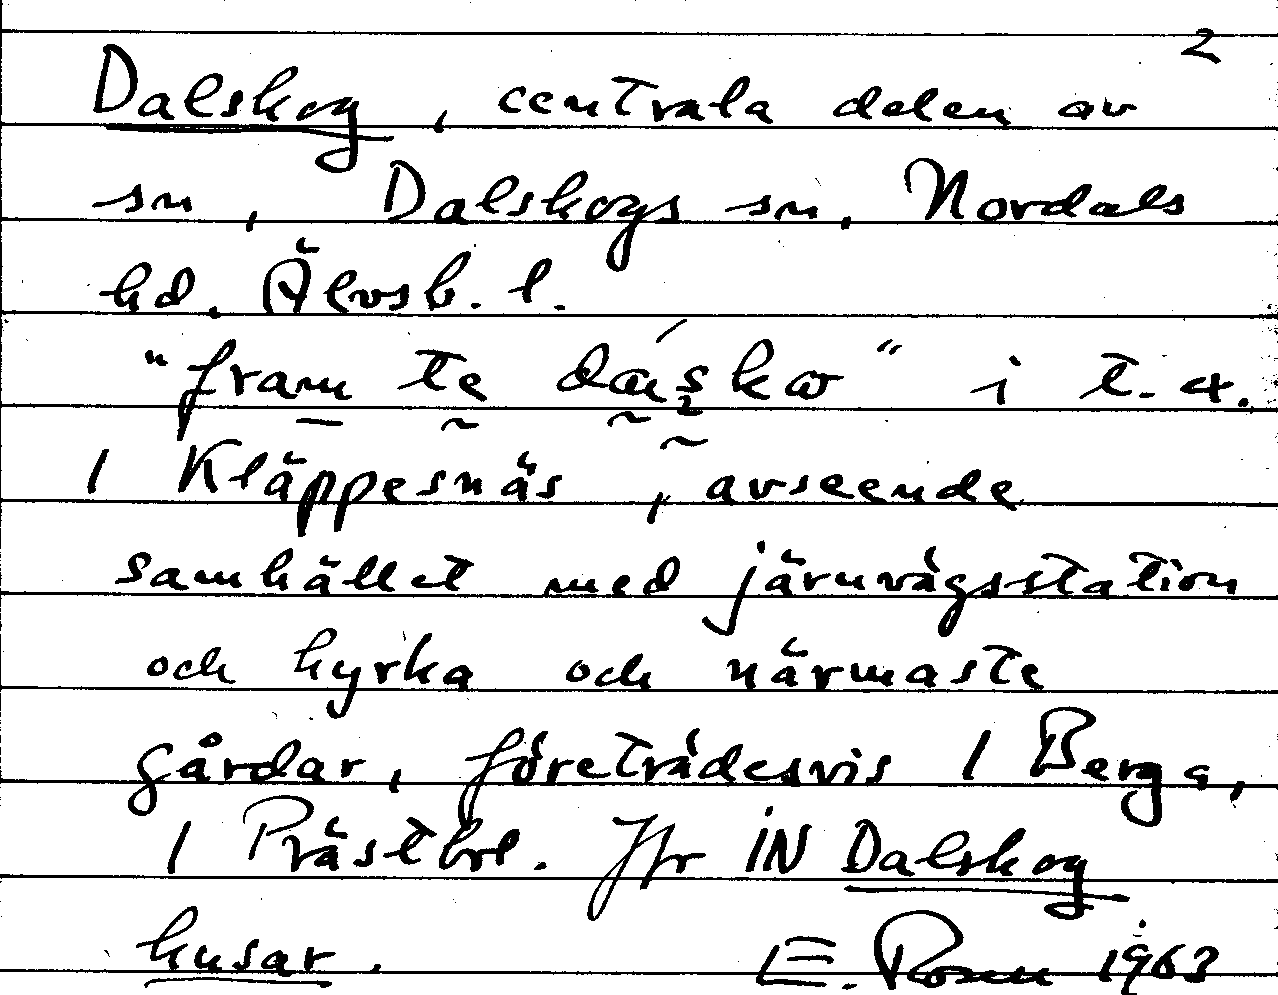 2
Dalskog, centrala delen av
sn, Dalskogs sn, Nordals
hd. Älvsb. l.
"fram te
i t. ex.
1 Kläppesnäs, avseende
samhället med järnvägsstation
och kyrka och närmaste
gårdar, företrädesvis 1 Berga,
1 Prästbol. Jfr IN Dalskog
husar. E. Rosén 1963